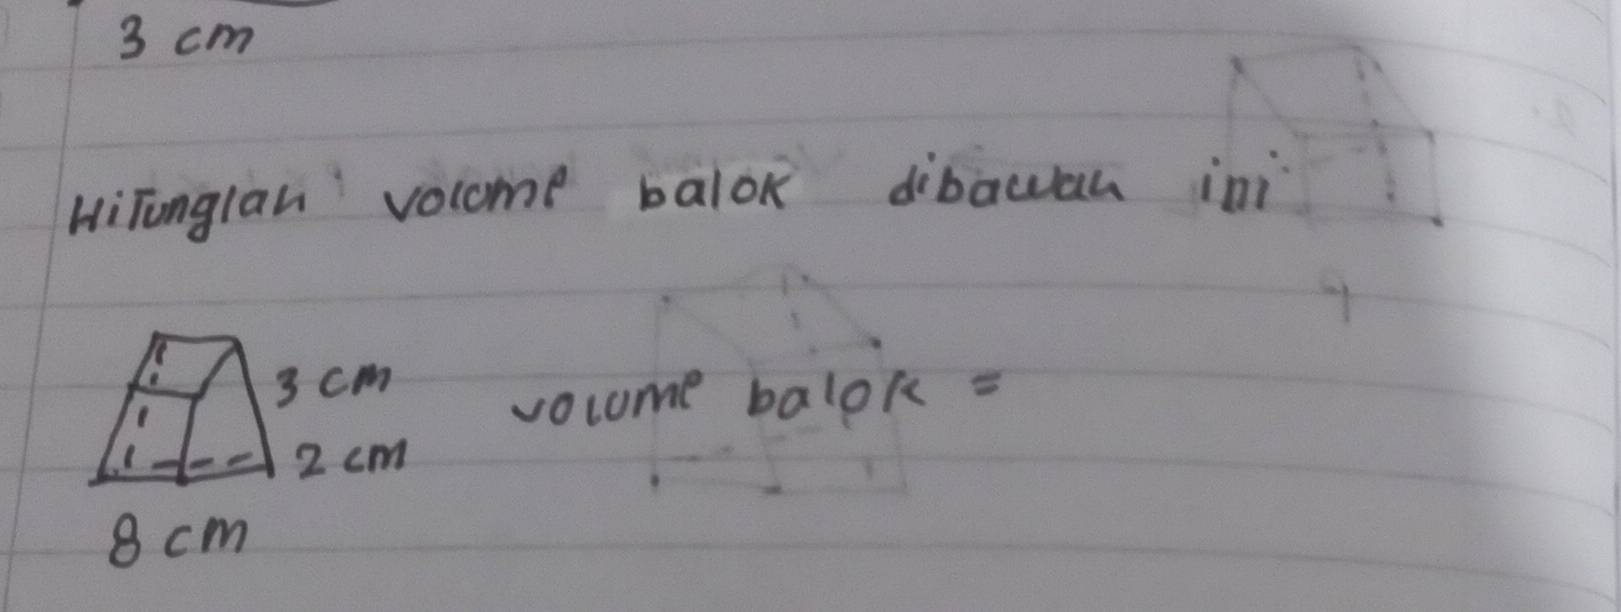 3 cm
Hitunglah volume balok dibawah ini
3 cm
volume balok =
2 cm
8 cm